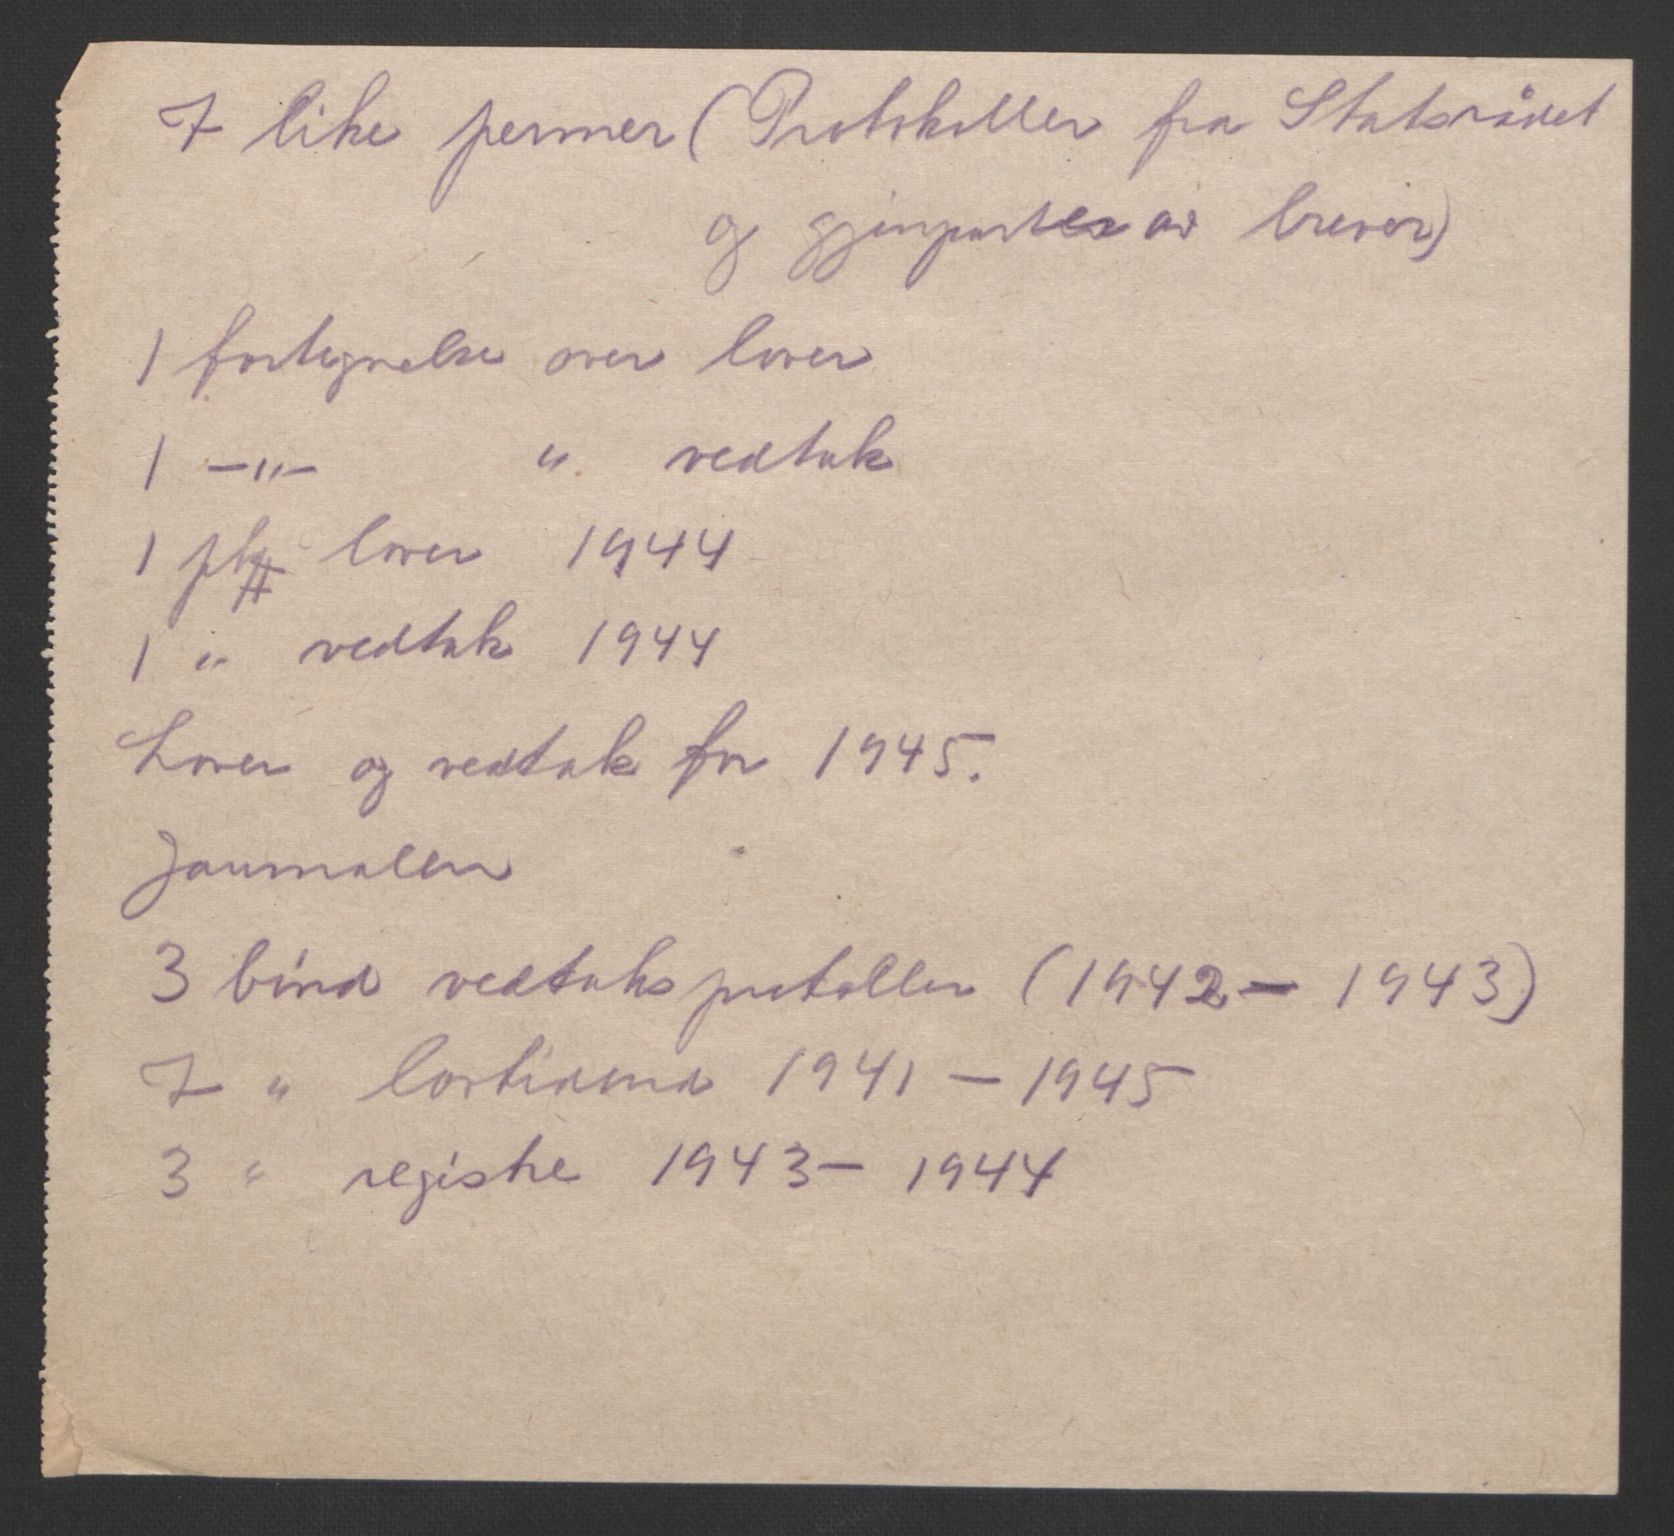 7 like permer (Protokoller fra Statsrådet
og gjenparter av brever)
1 fortegnelse over lover
1 -"- " vedtak
1 lover 1944
1 " vedtak 1944
Lover og vedtak for 1945.
Journalen
3 bind vedtaksprotoller (1942 - 1943)
7 " lovtidend 1941 - 1945
3 " registre 1943 - 1944